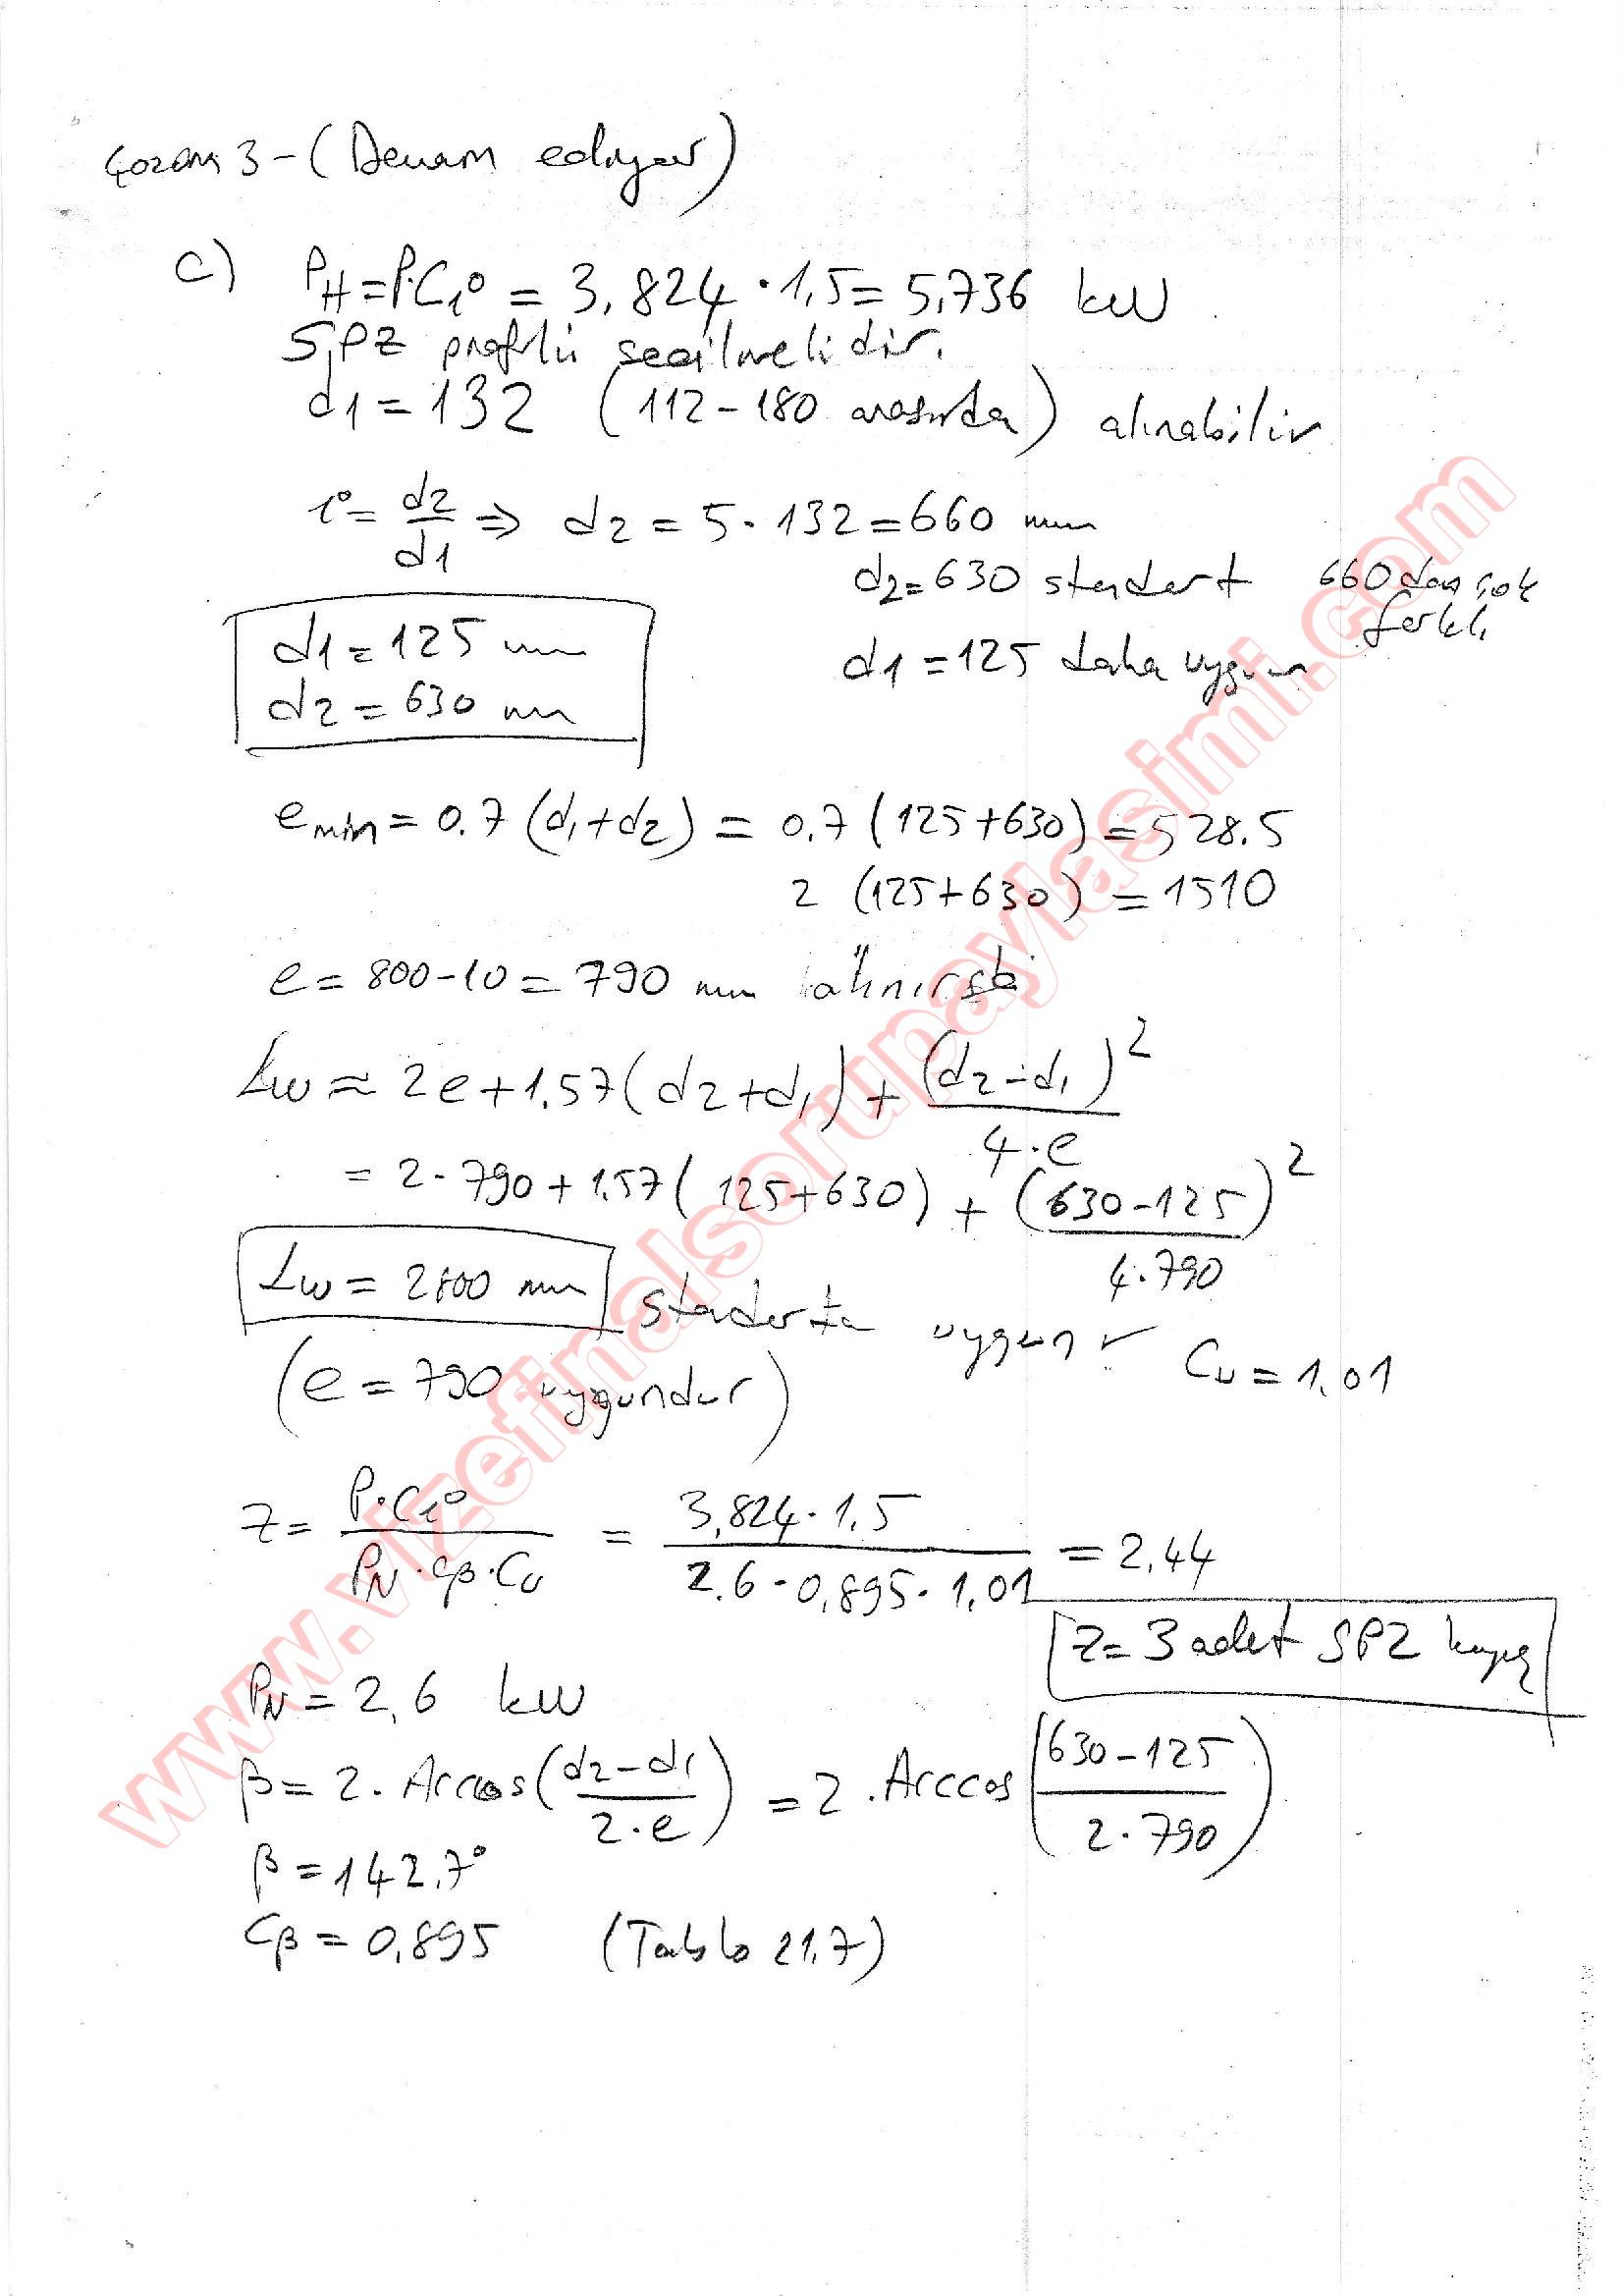 Çözüm 3 - (Devam ediyor)
c) P_H = P.C_i = 3,824 · 1,5 = 5,736 kW
SPZ profili seçilmelidir.
d1 = 132 (112-180 arasında) alınabilir
i = d2/d1 ⇒ d2 = 5 · 132 = 660 mm
d2 = 630 standart 660 dan çok farklı
d1 = 125 mm
d1 = 125 daha uygun
d2 = 630 mm
e min = 0.7 (d1+d2) = 0,7 (125+630) = 528.5
2 (125+630) = 1510
e = 800-10 = 790 mm
Lw ≈ 2e + 1.57 (d2+d1) + (d2-d1)²/4.e
= 2 · 790 + 1.57 (125+630) + (630-125)²/4.790
Lw = 2800 mm standarta uygun ✓ C_U = 1.01
(e = 790 uygundur)
z = P·C_i/P_N·Cβ·C_U = 3,824 · 1,5/2.6 · 0,895 · 1,01 = 2,44
z = 3 adet SPZ kayış
P_N = 2,6 kW
β = 2. Arccos(d2-d1/2·e) = 2 .Arccos(630-125/2·790)
β = 142.7°
Cβ = 0,895 (Tablo 21.7)
www.vizefinalsorupaylasimi.com